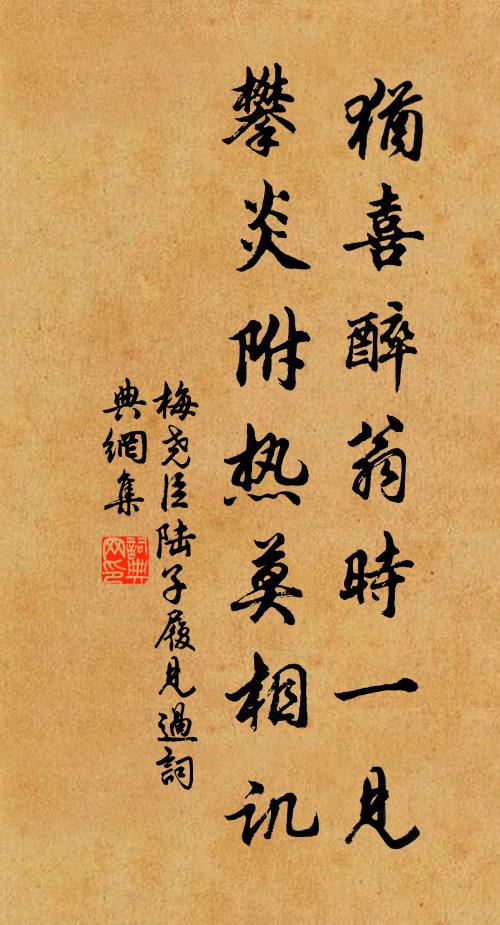 猶喜醉翁時一見
攀炎附热莫相讥
梅尧臣陆子履見過詞
典網集
詞典網印